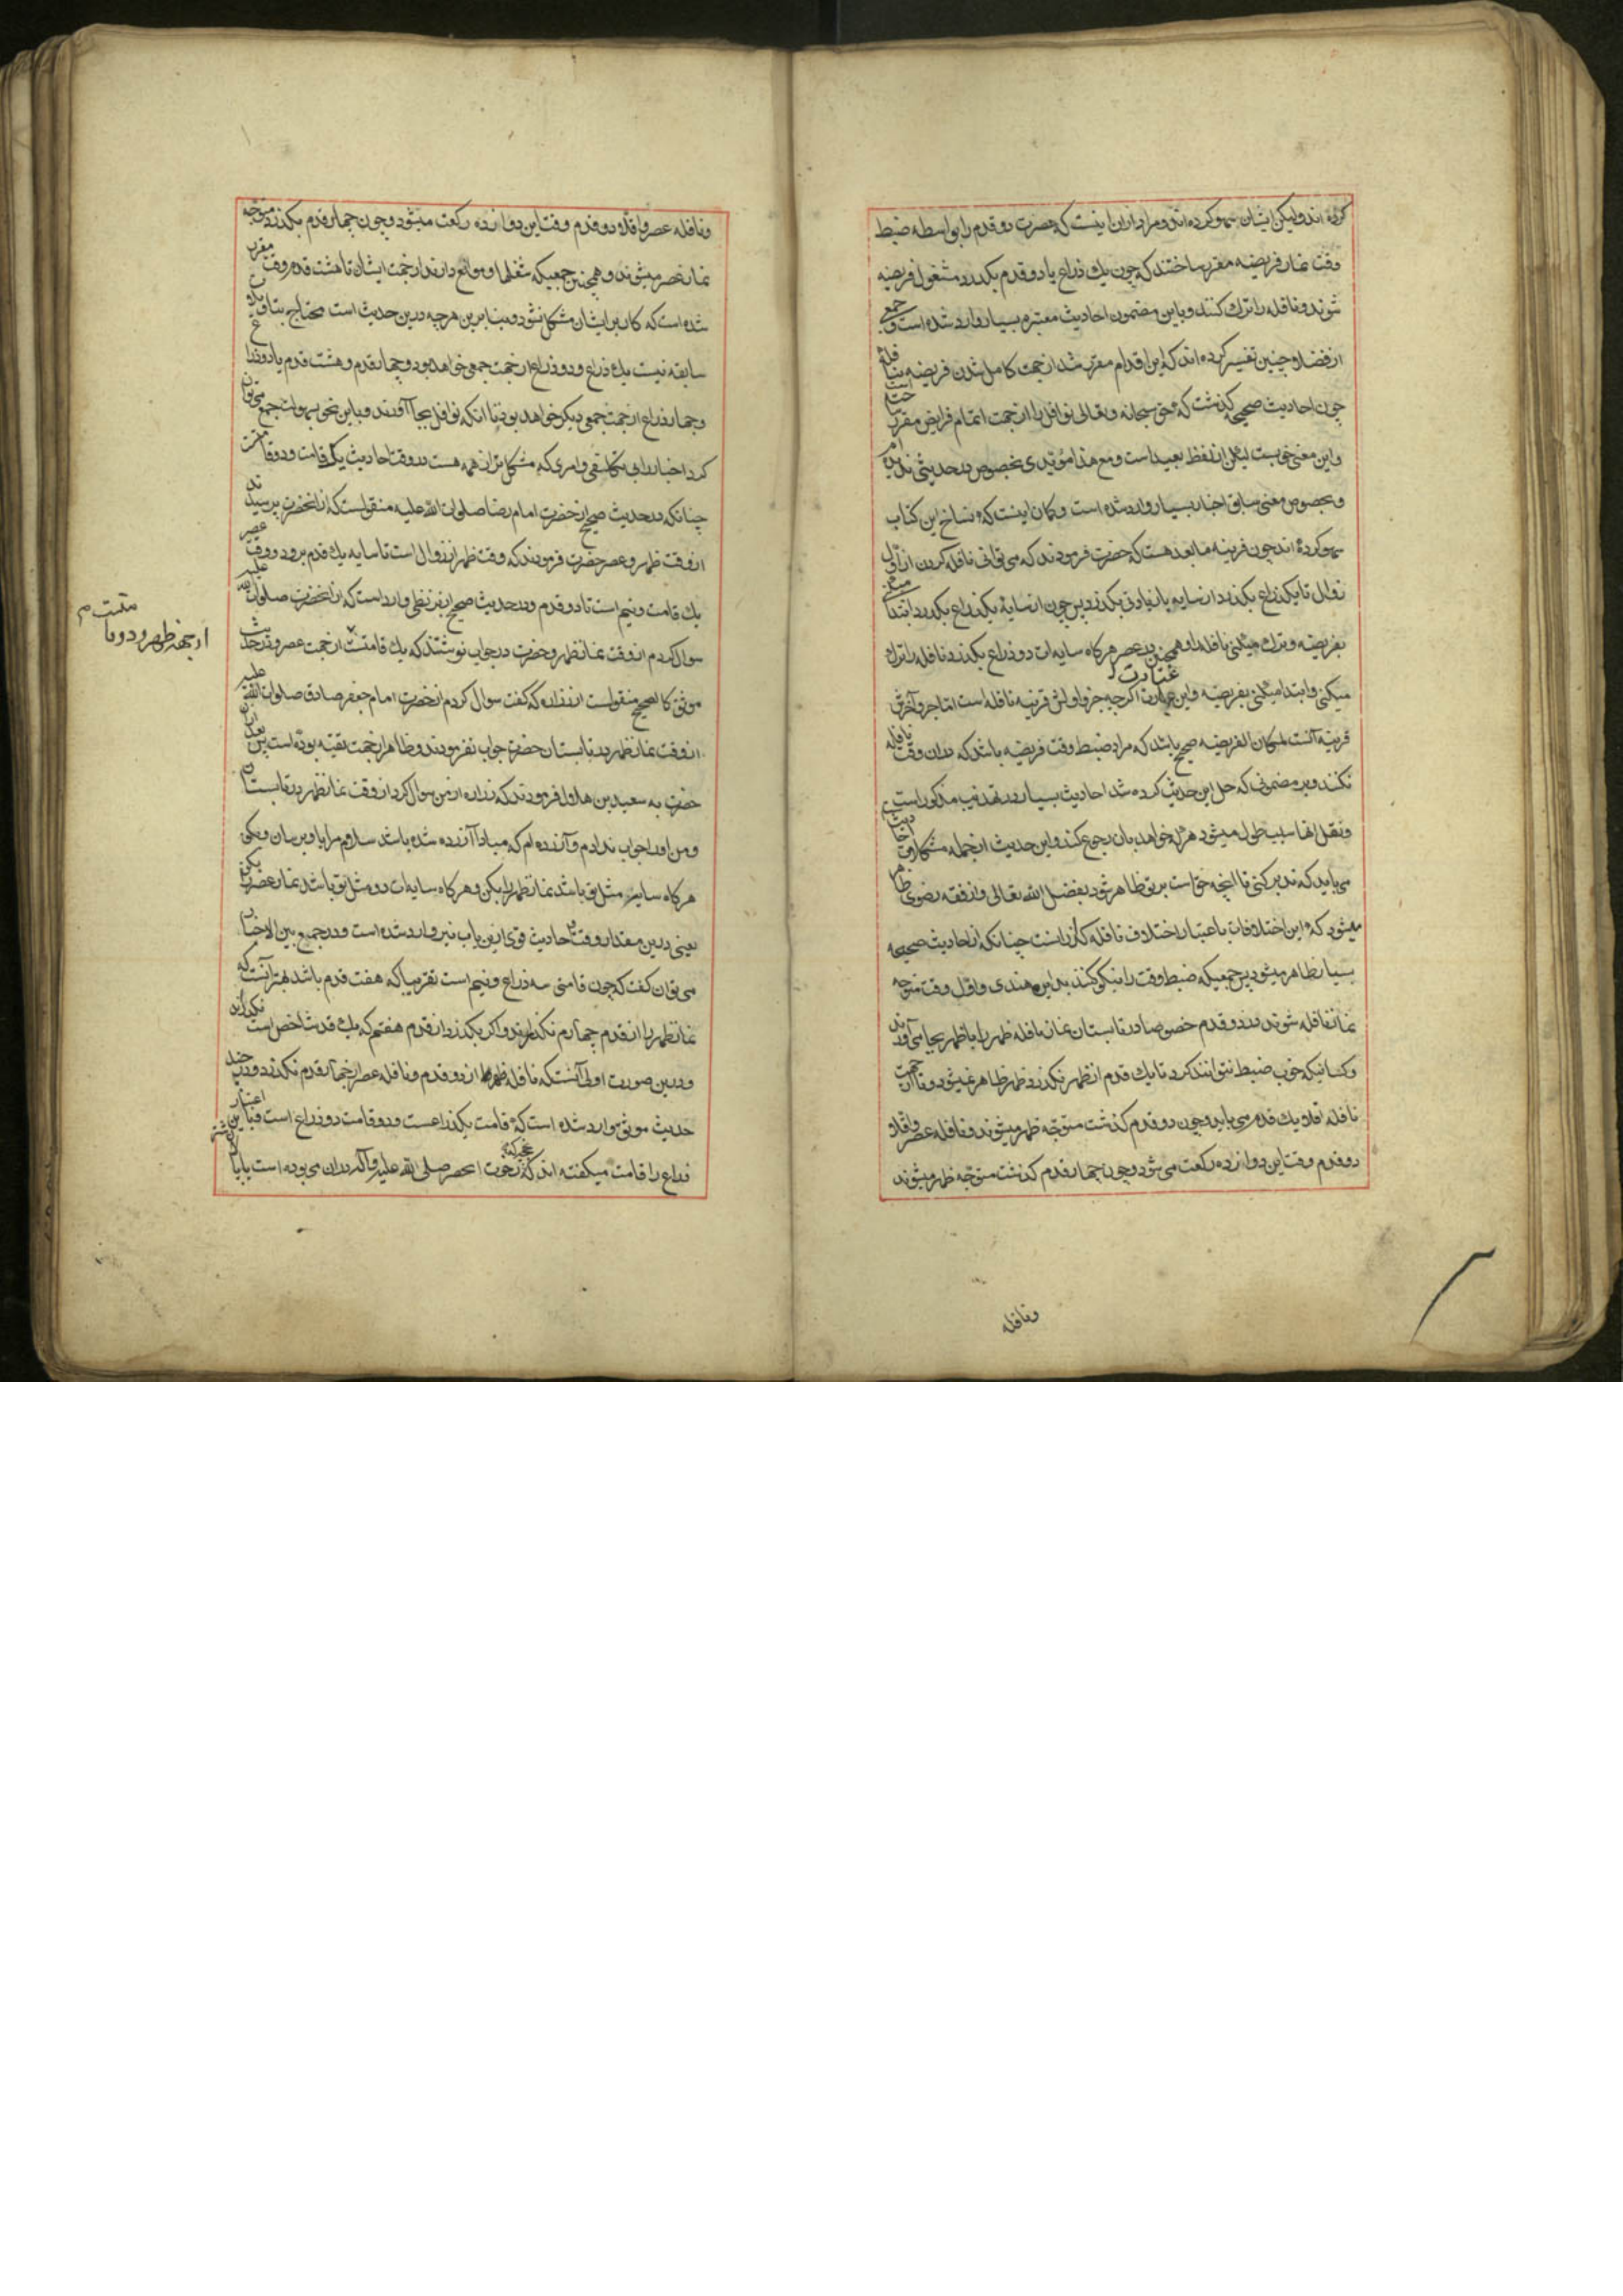 کرده اند ولیکن ایشان سهو کرده اند و مراد ازان اینست که حضرت دو قدم را بواسطه ضبط
وقت نماز فریضه مقرر ساختند که چون یک ذراع یا دو قدم بگذرد مشغول فریضه
شوند و نافله را ترک کنند و باین مضمون احادیث معتبره بسیار وارد شده است و جمعی
از فضلا چنین تفسیر کرده اند که این اقدام مقرر شد از جهت کامل شدن فریضه بنافله
چون احادیث صحیحه گذشت که حق سبحانه و تعالی نوافل را از جهت اتمام فرایض مقرر ساخته است
و این معنی خوبست لیکن از لفظ بعید است و مع هذا مؤیدی بخصوص در حدیثی ندیده ام
و بخصوص معنی سابق اخبار بسیار وارد شده است و گمان اینست که نساخ این کتاب
سهو کرده اند چون قرینه ما بعد هست که حضرت فرمودند که می توانی نافله کردن از اول
زوال تا یکذراع بگذرد از سایه یا زیادتی بگذرد پس چون از سایه یکذراع بگذرد ابتدا میکنی
بفریضه و ترک میکنی نافله را و همچنین در عصر هرگاه سایه ات دو ذراع بگذرد نافله را ترک
میکنی و ابتدا میکنی بفریضه و این عبارت اگر چه جزو اولش قرینه نافله است اما جزو آخرش
قرینه آنست لمکان الفریضه صحیح باشد که مراد ضبط وقت فریضه باشد که دران وقت نافله
نکنند و بر مضمونی که حل این حدیث کرده شد احادیث بسیار در تهذیب مذکور است
و نقل انها سبب طول میشود هر که خواهد بان رجوع کند و این حدیث از جمله مشکلات احادیث
می باید که تدبر کنی تا انچه حق است بر تو ظاهر شود بفضل الله تعالی و از فقه رضوی ظاهر
میشود که این اختلافات باعتبار اختلاف نافله گذار است چنانکه از احادیث صحیحه
بسیار ظاهر میشود پس جمعیکه ضبط وقت را نیکو کنند بدایره هندی و اول وقت متوجه
نماز نافله شوند در دو قدم خصوصا در تابستان نماز نافله ظهر را با ظهر بجا می آورند
و کسانیکه خوب ضبط نتوانند کرد تا یک قدم از ظهر نگذرد ظهر ظاهر نمیشود و از جهت
نافله اقلا یک قدم می باید و چون دو قدم گذشت متوجه ظهر میشوند و نافله عصر و اقلا
دو قدم وقت این دوازده رکعت می شود و چون چهار قدم گذشت متوجه ظهر میشوند
و نافله
و نافله عصر و اقلا دو قدم وقت این دوازده رکعت میشود و چون چهار قدم بگذرد متوجه
نماز عصر میشوند و همچنین جمعیکه شغلها و موانع دارند از جهت ایشان تا هشت قدم وقت مقرر
شده است که کار بر ایشان مشکل نشود و بنا برین هرچه درین حدیث است محتاج بتاویلات
سابقه نیست یک ذراع و دو ذراع از جهت جمعی خواهد بود و چهار قدم و هشت قدم یا دو ذراع
و چهار ذراع از جهت جمعی دیگر خواهد بود تا انکه نوافل بجا آورند و باین نحو بسهولت جمع می توان
کرد اخبار را بی تکلفی و امری که مشکل تر از همه هست در وقتها حادیث یک قامت و دو قامت
چنانکه در حدیث صحیح از حضرت امام رضا صلوات الله علیه منقولست که از انحضرت پرسیدند
از وقت ظهر و عصر حضرت فرمودند که وقت ظهر از زوال است تا سایه یک قدم برود و وقت عصر
یک قامت و نیم است تا دو قدم و در حدیث صحیح از بزنطی وارد است که از انحضرت صلوات الله علیه
سوال کردم از وقت نماز ظهر و حضرت در جواب نوشتند که یک قامتست از جهت عصر و در حدیث
قامتست م
از جهة ظهر و دو قا
موثق کالصحیح منقولست از زراره که گفت سوال کردم از حضرت امام جعفر صادق صلوات الله علیه
از وقت نماز ظهر در تابستان حضرت جواب نفرمودند و ظاهرا از جهت تقیه بوده است پس بعد از ان
حضرت به سعید بن هلال فرمودند که زراره از من سوال کرد از وقت نماز ظهر در تابستان
و من او را جواب ندادم و آزرده ام که مبادا آزرده شده باشد سلام مرا باو برسان و بگو
هرگاه سایه مثل تو باشد نماز ظهر را بکن و هرگاه سایه ات دو مثل تو باشد نماز عصر را بکن
یعنی درین مقدار وقت و احادیث قوی ازین باب نیز وارد شده است و در جمیع بین الاخبار
می توان گفت که چون قامتی سه ذراع و نیم است تقریبا که هفت قدم باشد بهتر آنست که
نماز ظهر را از قدم چهارم نگذرانند و اگر بگذرد از قدم هفتم که یک قد شاخص است نگذرانند
و درین صورت اولی آنستکه نافله ظهر از دو قدم و نافله عصر از چهار قدم نگذرد و در چند
حدیث موثق وارد شده است که قامت یکذراعست و دو قامت دو ذراع است و باین اعتبار
ذراع را قامت میگفته اند که چوب انحضرت صلی الله علیه و آله دران می بوده است یا بالان